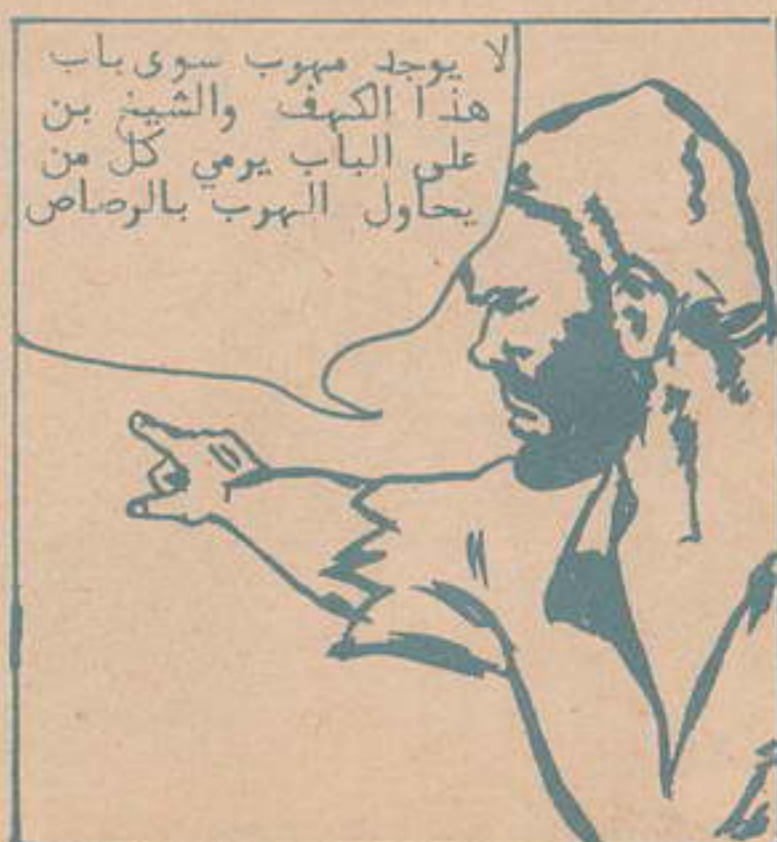 لا يوجد مهرب سوى باب
هذا الكهف والشيخ بن
على الباب يرمي كل من
يحاول الهرب بالرصاص